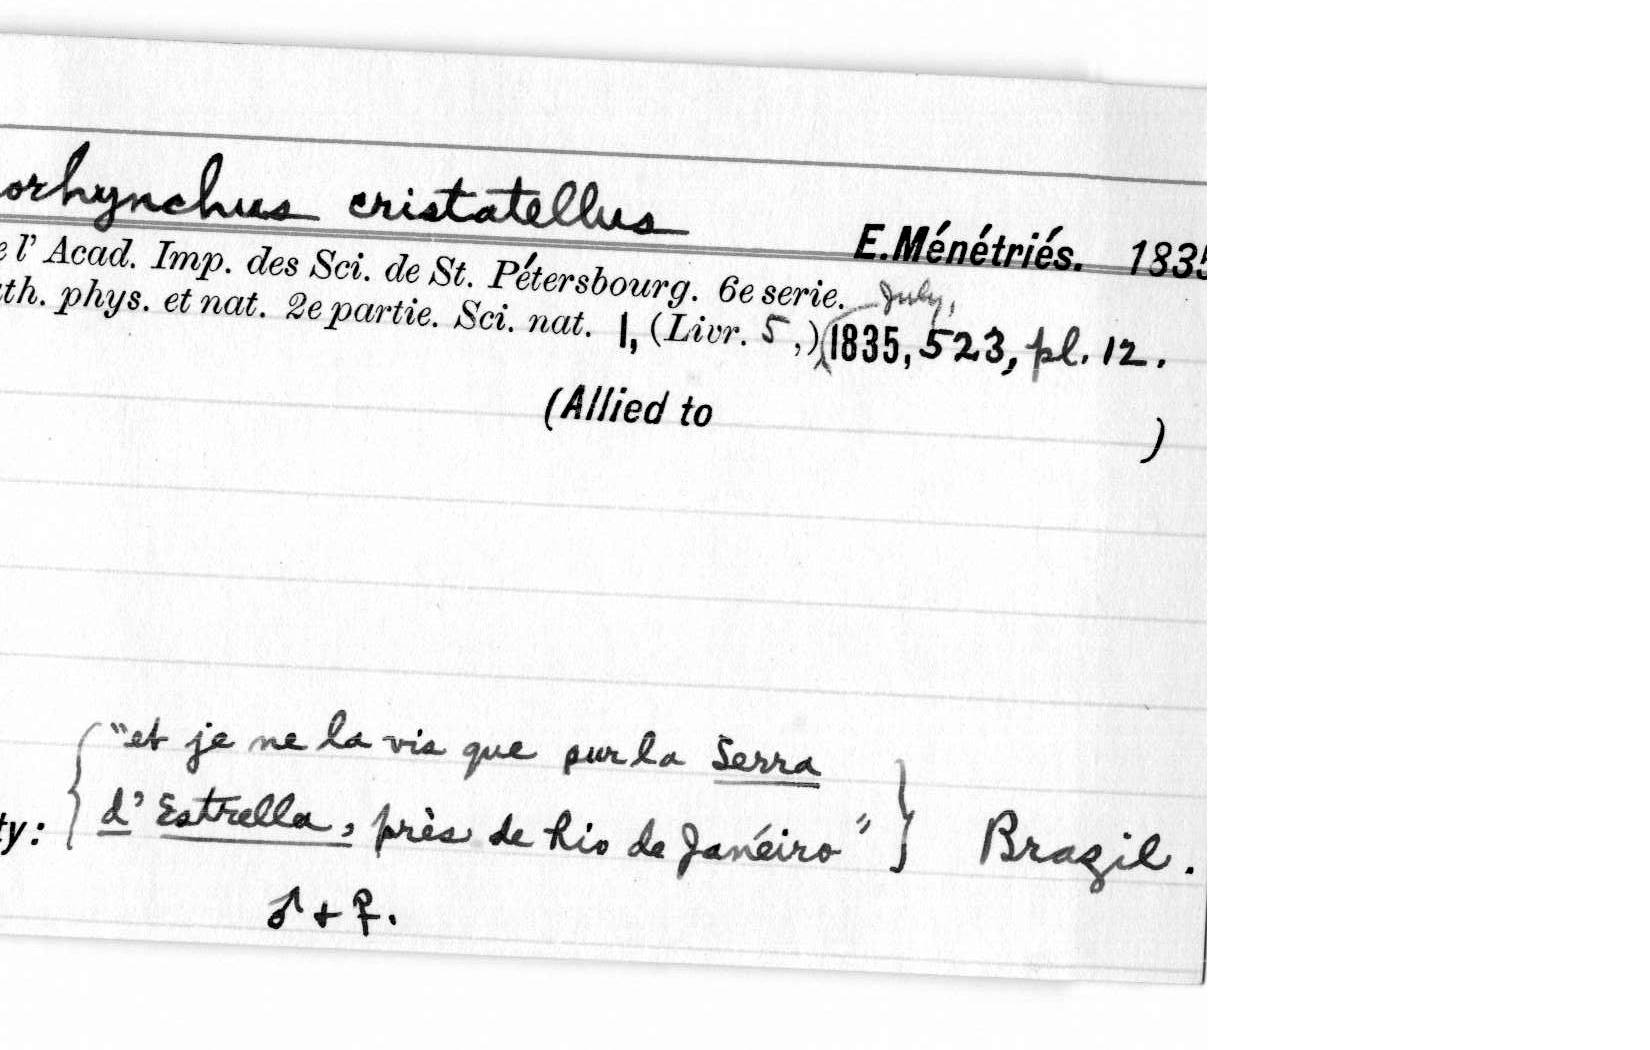 orhynchus cristatellus
E. Ménétriés. 1835
e l' Acad. Imp. des Sci. de St. Pétersbourg. 6e serie. July,
th. phys. et nat. 2e partie. Sci. nat. 1, (Livr. 5,) (1835, 523, pl. 12.
(Allied to )
"et je ne la vis que sur la Serra
ty: d' Estrella, près de Rio de Janéiro" Brazil.
♂ + ♀.